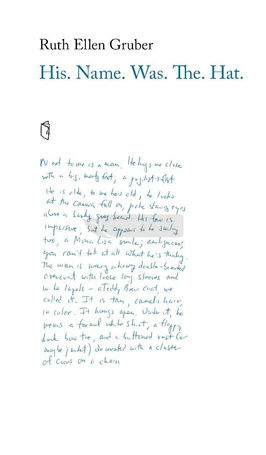 Ruth Ellen Gruber
His. Name. Was. The. Hat.
Next to me is a man. He hugs me close
with a big, meaty fist, a pugilist's fist
He is older, to me he's old, he looks
at the camera full on, pale starey eyes
above a bushy grey beard. His face is
impassive, but he appears to be smiling
too, a Mona Lisa smile; ambiguous;
you can't tell at all what he's thinking.
The man is wearing a heavy double-breasted
overcoat with loose long sleeves and
wide lapels - a Teddy Bear coat, we
called it. It is tan, camel's hair,
in color. It hangs open. Under it, he
wears a formal white shirt, a floppy
dark bow tie, and a buttoned vest (or
maybe jacket) decorated with a cluster
of coins on a chain